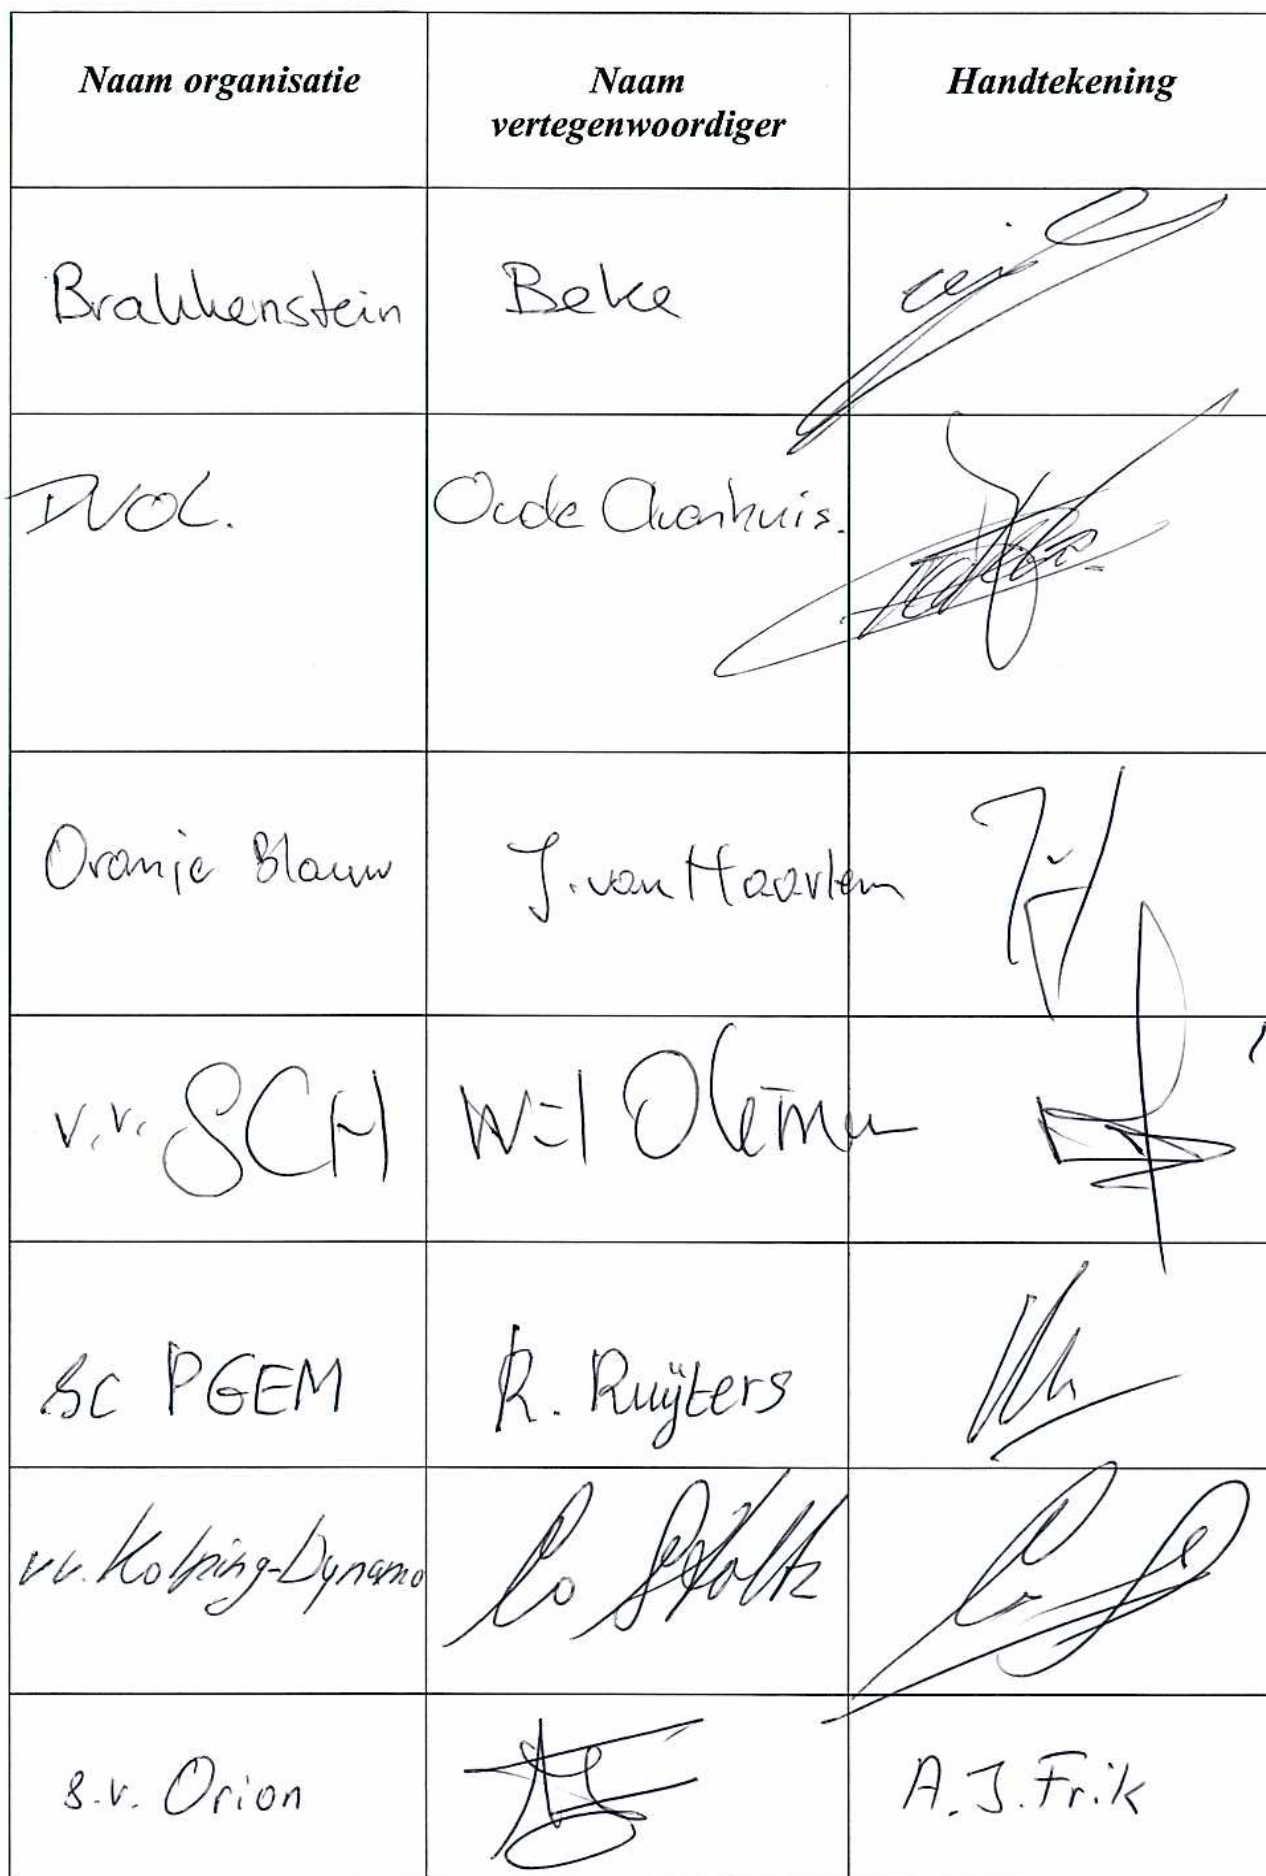 Naam organisatie
Naam
vertegenwoordiger
Handtekening
Brakkenstein
Beke
DVOL.
Oude
Oranje Blauw
J. van Haarlem
v.v. SCH
Wil
sc PGEM
R. Ruijters
vv. Kolping-Dynamo
Co
s.v. Orion
A. J. Frik